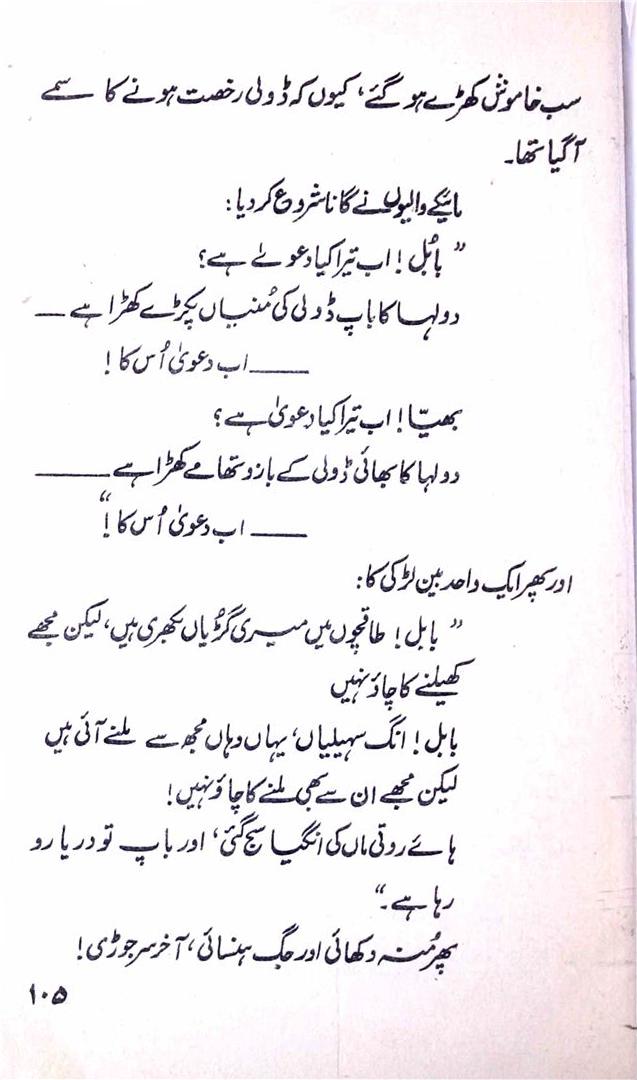 سب خاموش کھڑے ہو گئے، کیوں کہ ڈولی رخصت ہونے کا سمے
آگیا تھا۔
مائیکے والیوں نے گانا شروع کر دیا:
” بابُل! اب تیرا کیا دعوےٰ ہے؟
دولہا کا باپ ڈولی کی مُنیاں پکڑے کھڑا ہے ——
—— اب دعویٰ اُس کا!
بھیّا! اب تیرا کیا دعویٰ ہے؟
دولہا کا بھائی ڈولی کے بازو تھامے کھڑا ہے ——
—— اب دعویٰ اُس کا!“
اور پھر ایک واحد بین لڑکی کا:
” بابل! طاقچوں میں میری گڑیاں بکھری ہیں، لیکن مجھے
کھیلنے کا چاؤ نہیں
بابل! انگ سہیلیاں، یہاں وہاں مجھ سے ملنے آئی ہیں
لیکن مجھے ان سے بھی ملنے کا چاؤ نہیں!
ہائے روتی ماں کی انگیا سیج گئی، اور باپ تو دریا رو
رہا ہے۔“
پھر مُنہ دکھائی اور جگ ہنسائی، آخر سر جوڑی!
۱۰۵